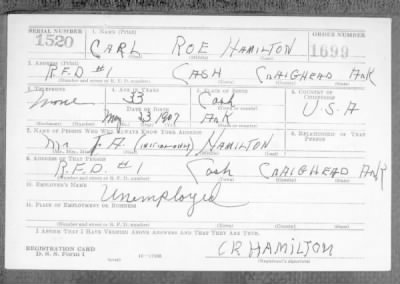 SERIAL NUMBER 1. NAME (Print) ORDER NUMBER
1520 CARL ROE HAMILTON 1699
(First) (Middle) (Last)
2. ADDRESS (Print)
R.F.D #1 CASH CRAIGHEAD ARK
(Number and street or R. F. D. number) (Town) (County) (State)
3. TELEPHONE 4. AGE IN YEARS 5. PLACE OF BIRTH 6. COUNTRY OF CITIZENSHIP
none 33 Cash U.S.A
DATE OF BIRTH (Town or county)
May 23 1907 Ark
(Exchange) (Number) (Mo.) (Day) (Yr.) (State or country)
7. NAME OF PERSON WHO WILL ALWAYS KNOW YOUR ADDRESS 8. RELATIONSHIP OF THAT PERSON
Mr. J. A. (initial only) HAMILTON
(Mr., Mrs., Miss) (First) (Middle) (Last)
9. ADDRESS OF THAT PERSON
R.F.D. #1 Cash CRAIGHEAD ARK
(Number and street or R. F. D. number) (Town) (County) (State)
10. EMPLOYER'S NAME
Unemployed
11. PLACE OF EMPLOYMENT OR BUSINESS
(Number and street or R. F. D. number) (Town) (County) (State)
I AFFIRM THAT I HAVE VERIFIED ABOVE ANSWERS AND THAT THEY ARE TRUE.
REGISTRATION CARD CR HAMILTON
D. S. S. Form 1 (Registrant's signature)